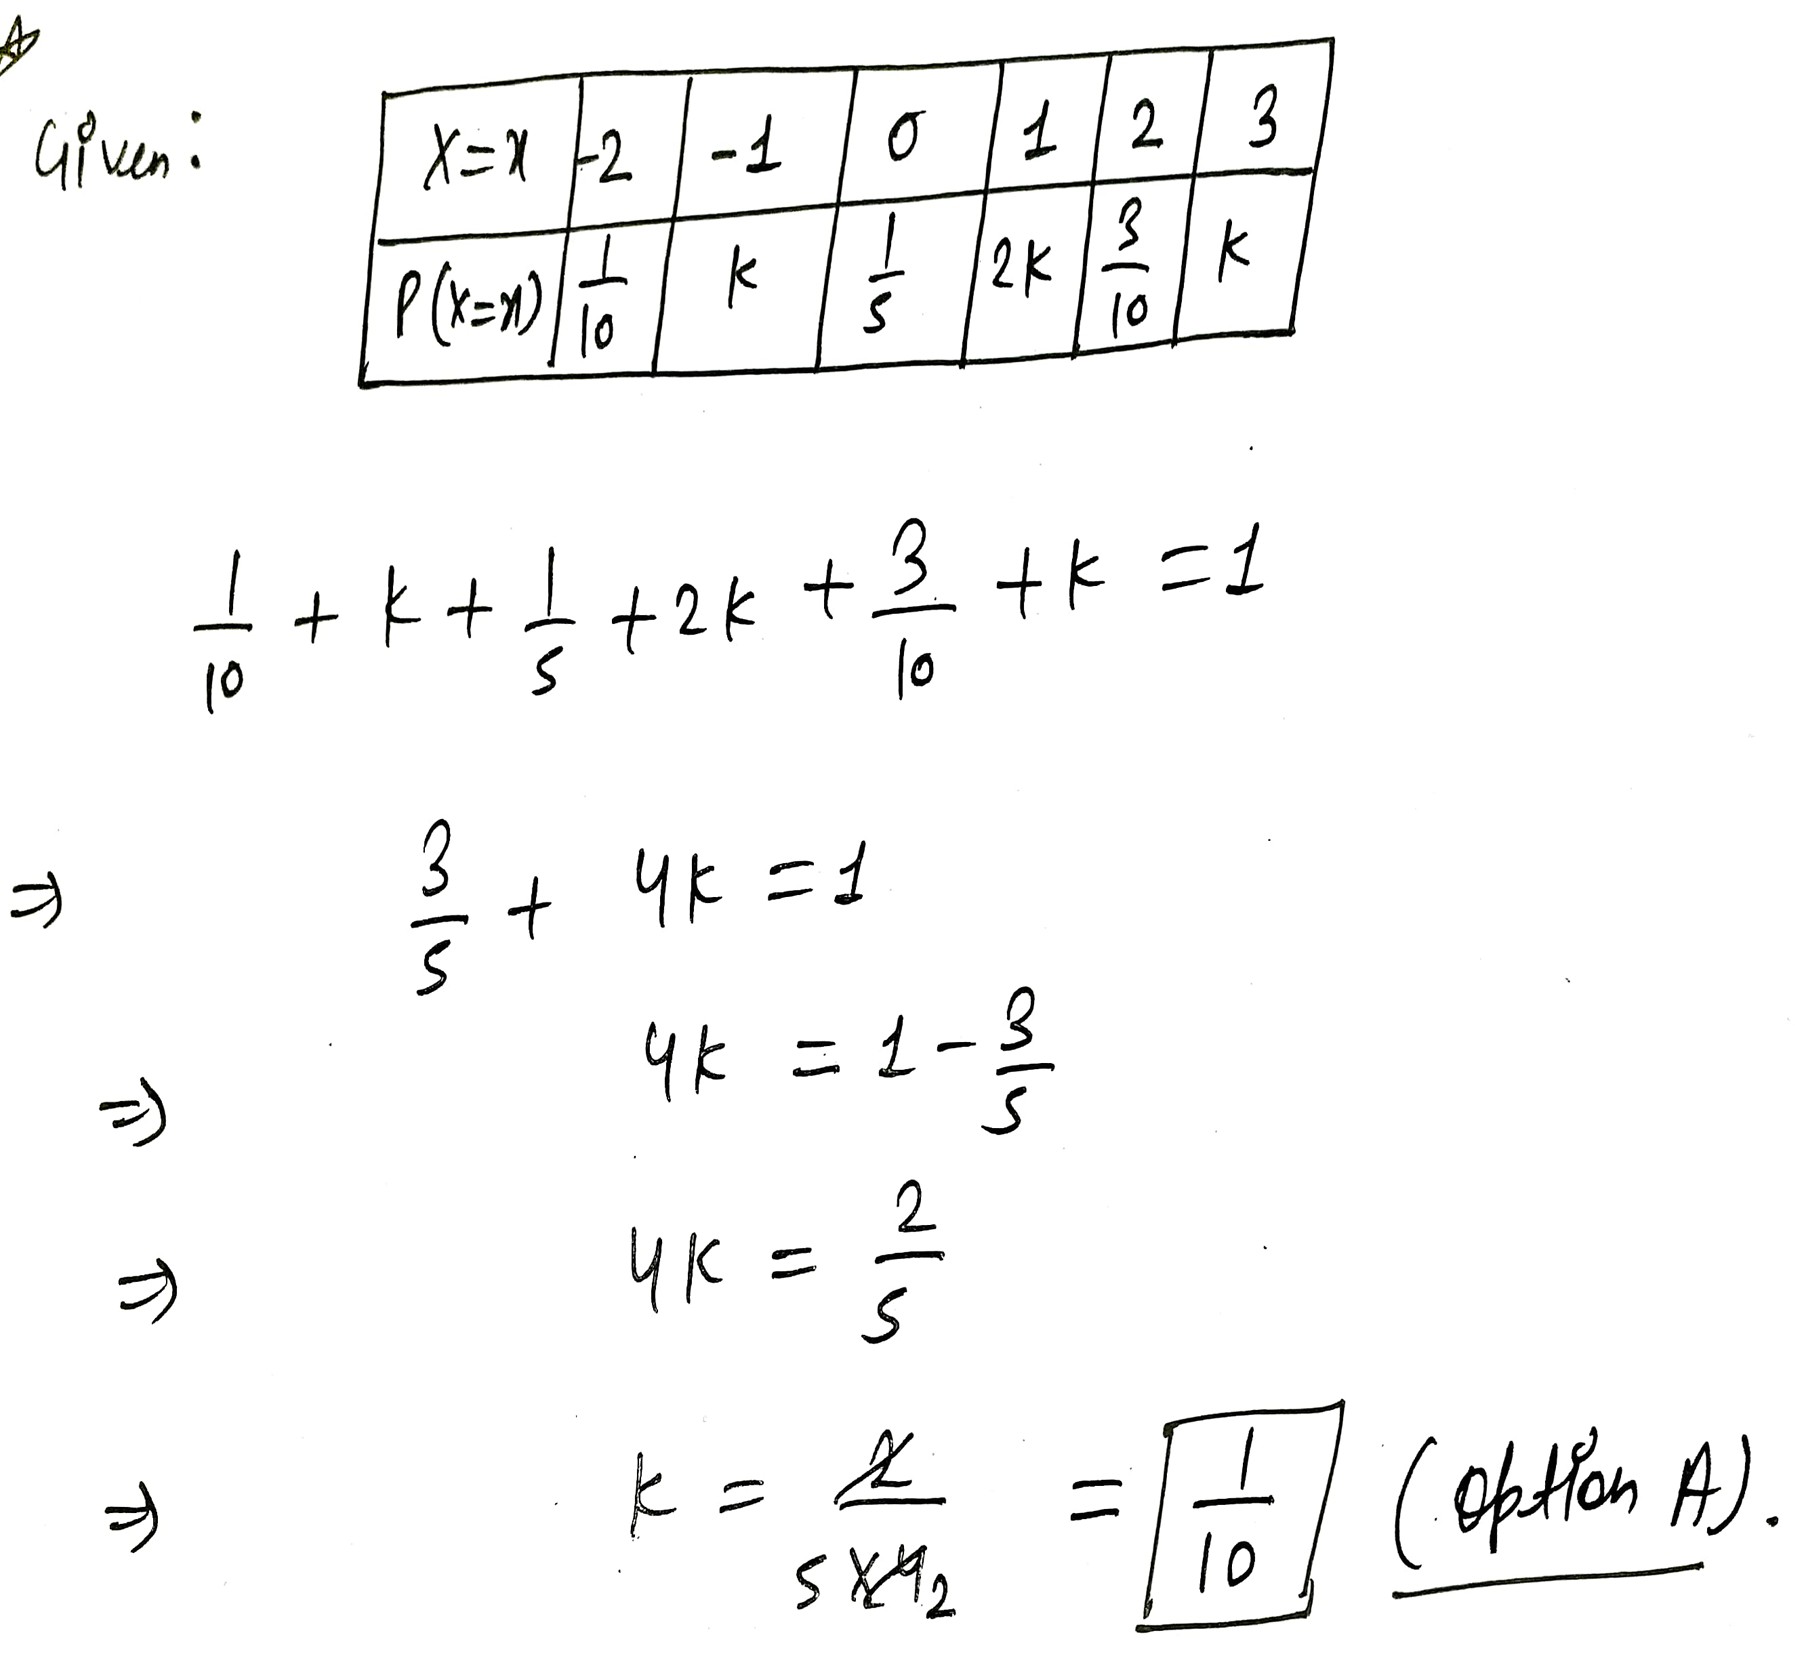 Given:
X=x -2 -1 0 1 2 3
P(X=x) 1/10 k 1/5 2k 3/10 k
1/10 + k + 1/5 + 2k + 3/10 + k = 1
⇒ 3/5 + 4k = 1
⇒ 4k = 1 - 3/5
⇒ 4k = 2/5
⇒ k = 2/5×4 2 = 1/10 (Option A).